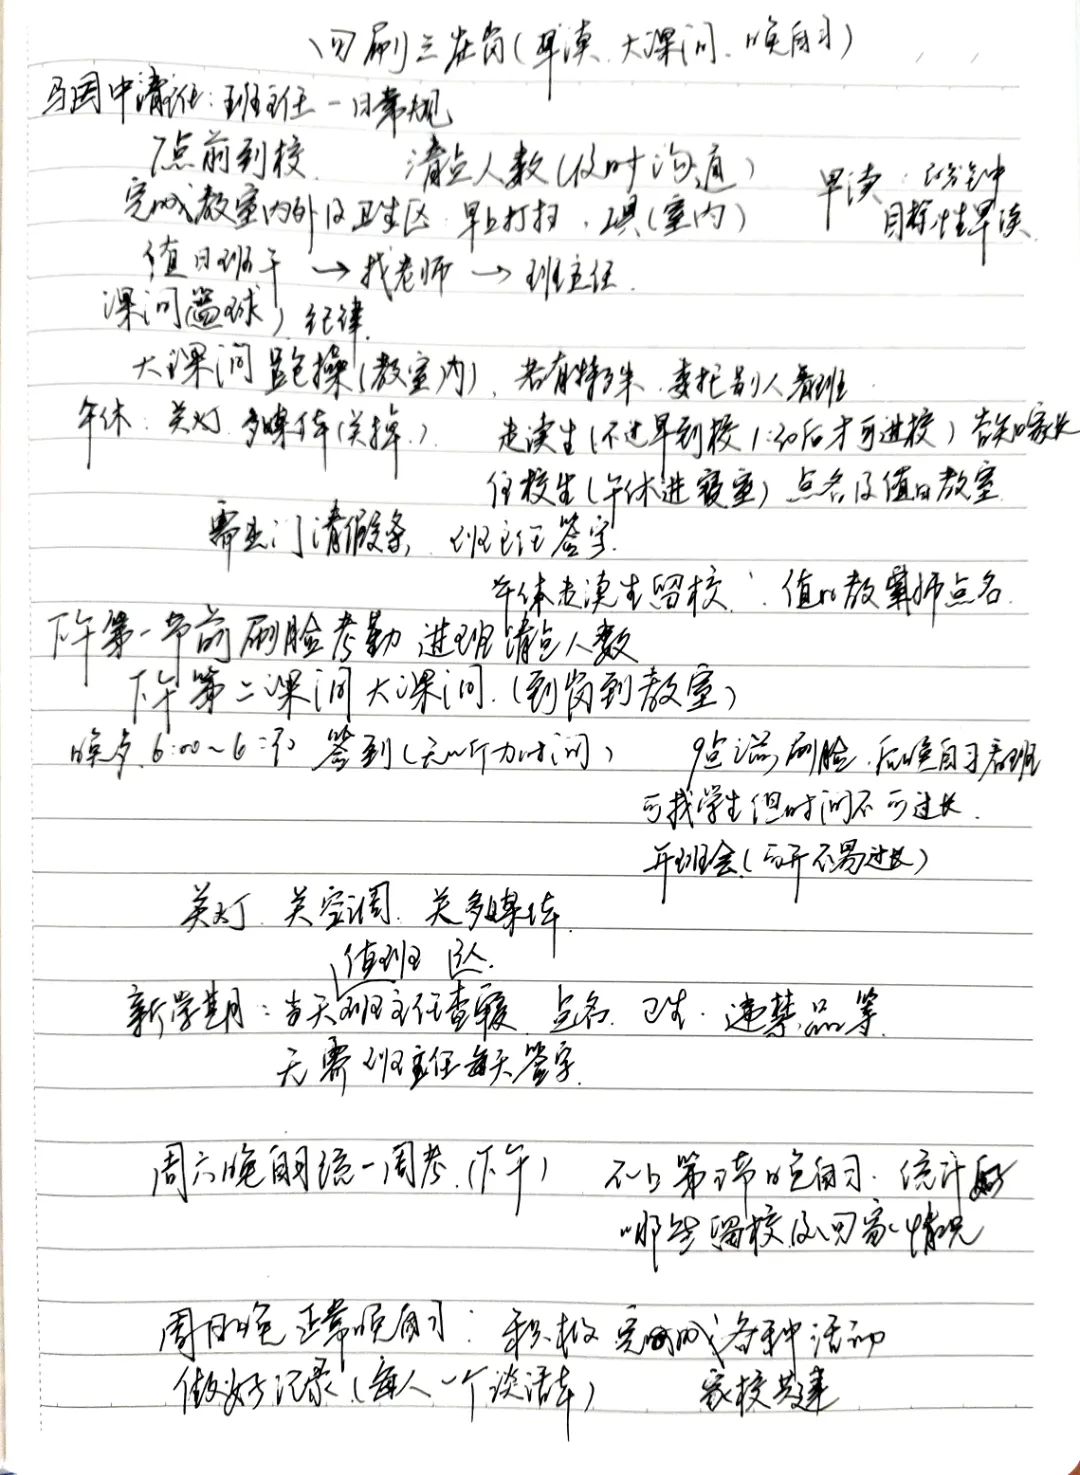 四刷三在岗(早读、大课间、晚自习)
马国中清主任:班主任一日常规
7点前到校 清点人数(及时沟通)
早读: 分钟
完成教室内外及卫生区 早上打扫、工具(室内)
目标性早读
值日班干 → 找老师 → 班主任.
课间篮球) 纪律.
大课间跑操(教室内)、若有特殊、委托别人看班.
午休:关灯 多媒体(关掉.) 走读生(不过早到校 1:30后才可进校)告知家长
住校生(午休进寝室)点名及值日教室
需出门请假条, 班主任签字.
午休走读生留校:值日教师点名.
下午第一节前刷脸考勤 进班清点人数
下午第二课间大课间.(到岗到教室)
晚 6:00~6: 签到(无听力时间) 9点 刷脸.后晚自习看班
可找学生但时间不可过长.
开班会(可开不易过长)
关灯. 关空调. 关多媒体.
值班
新学期:当天班主任查寝 点名. 卫生. 违禁品等.
无需班主任每天签字.
周六晚自习统一周考.(下午) 不上第 节晚自习.统计好
哪些留校及回家情况
周日晚正常晚自习:积极完成各种活动
做好记录(每人一个谈话本) 家校共建